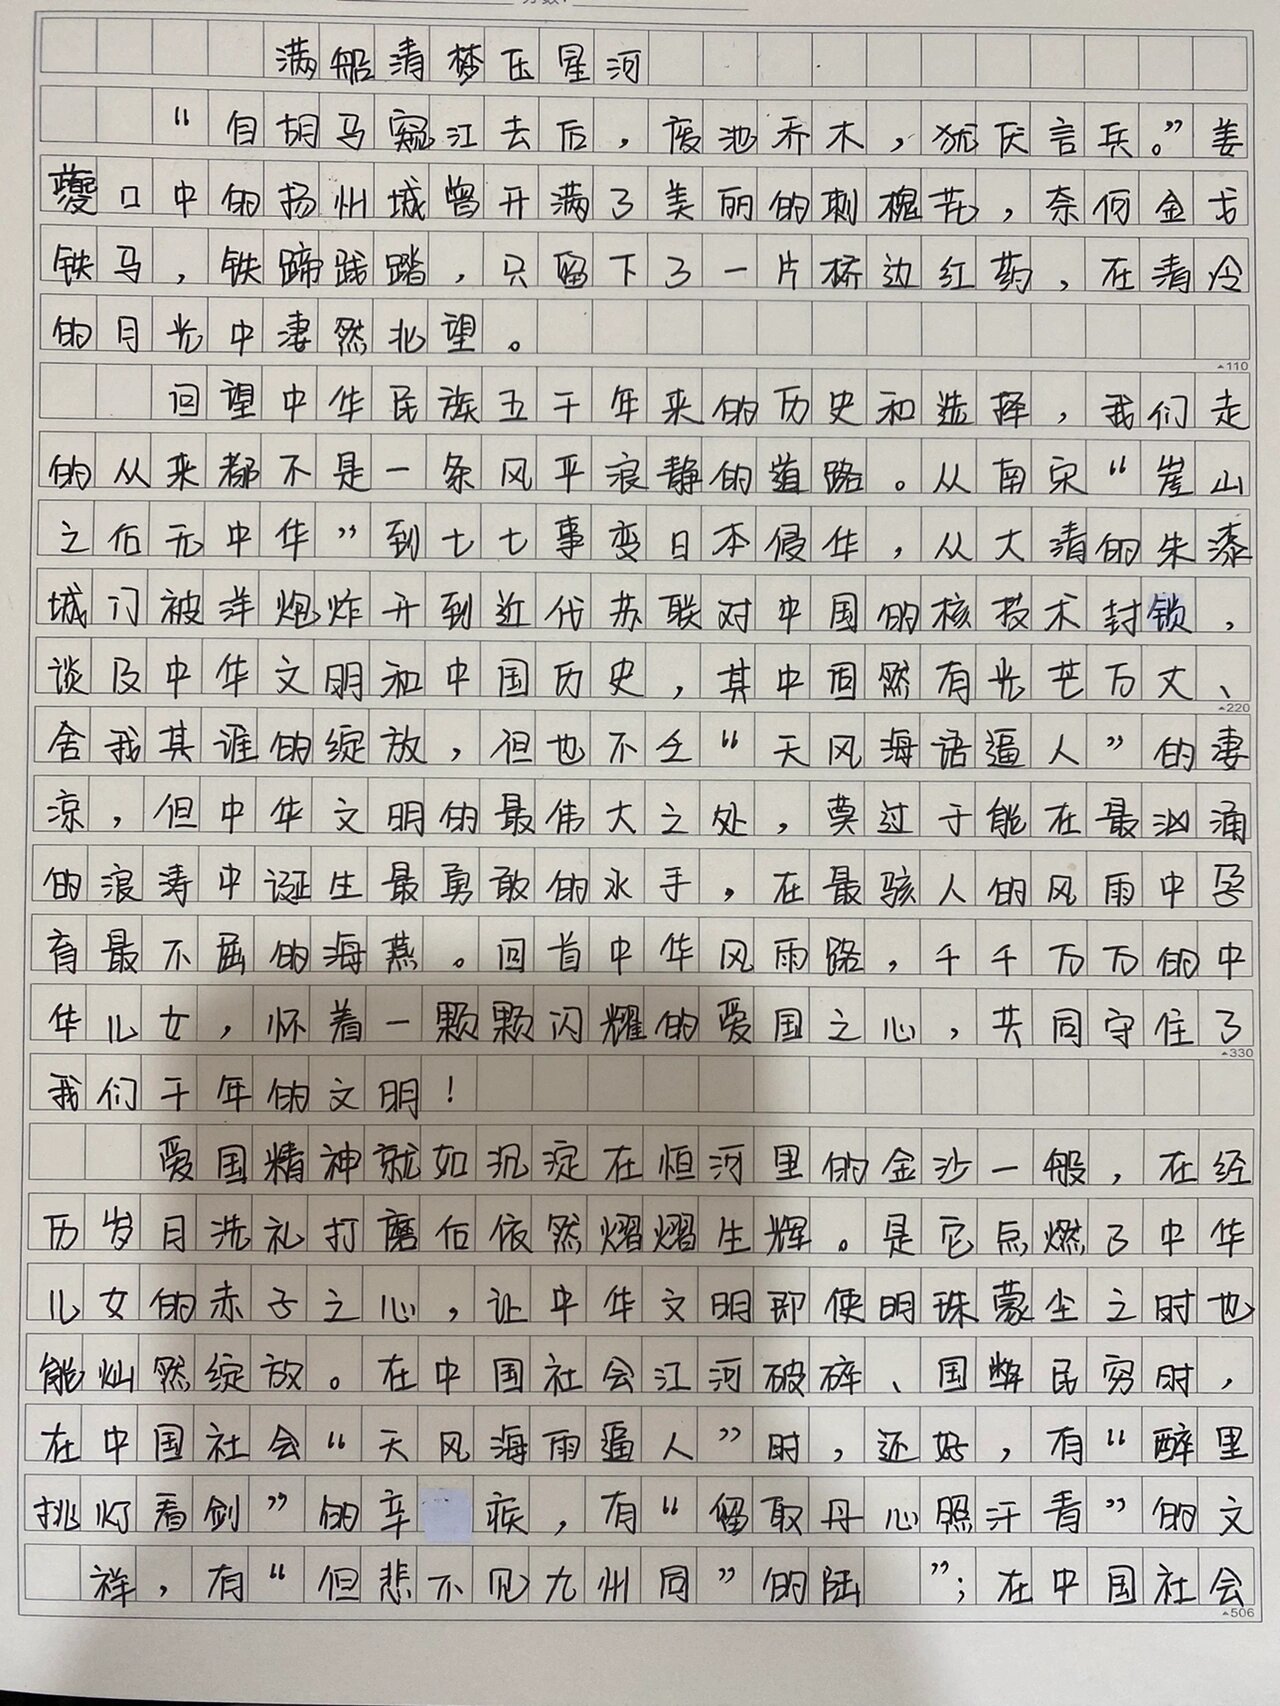 满船清梦压星河
“自胡马窥江去后，废池乔木，犹厌言兵。”姜
夔口中的扬州城曾开满了美丽的刺槐花，奈何金戈
铁马，铁蹄践踏，只留下了一片桥边红药，在清冷
的月光中凄然北望。
110
回望中华民族五千年来的历史和选择，我们走
的从来都不是一条风平浪静的道路。从南宋“崖山
之后无中华”到七七事变日本侵华，从大清的朱漆
城门被洋炮炸开到近代苏联对中国的核技术封锁，
谈及中华文明和中国历史，其中固然有光芒万丈、
220
舍我其谁的绽放，但也不乏“天风海语逼人”的凄
凉，但中华文明的最伟大之处，莫过于能在最汹涌
的浪涛中诞生最勇敢的水手，在最骇人的风雨中孕
育最不屈的海燕。回首中华风雨路，千千万万的中
华儿女，怀着一颗颗闪耀的爱国之心，共同守住了
330
我们千年的文明！
爱国精神就如沉淀在恒河里的金沙一般，在经
历岁月洗礼打磨后依然熠熠生辉。是它点燃了中华
儿女的赤子之心，让中华文明即使明珠蒙尘之时也
能灿然绽放。在中国社会江河破碎、国弊民穷时，
在中国社会“天风海雨逼人”时，还好，有“醉里
挑灯看剑”的辛疾，有“留取丹心照汗青”的文
祥，有“但悲不见九州同”的陆”；在中国社会
506